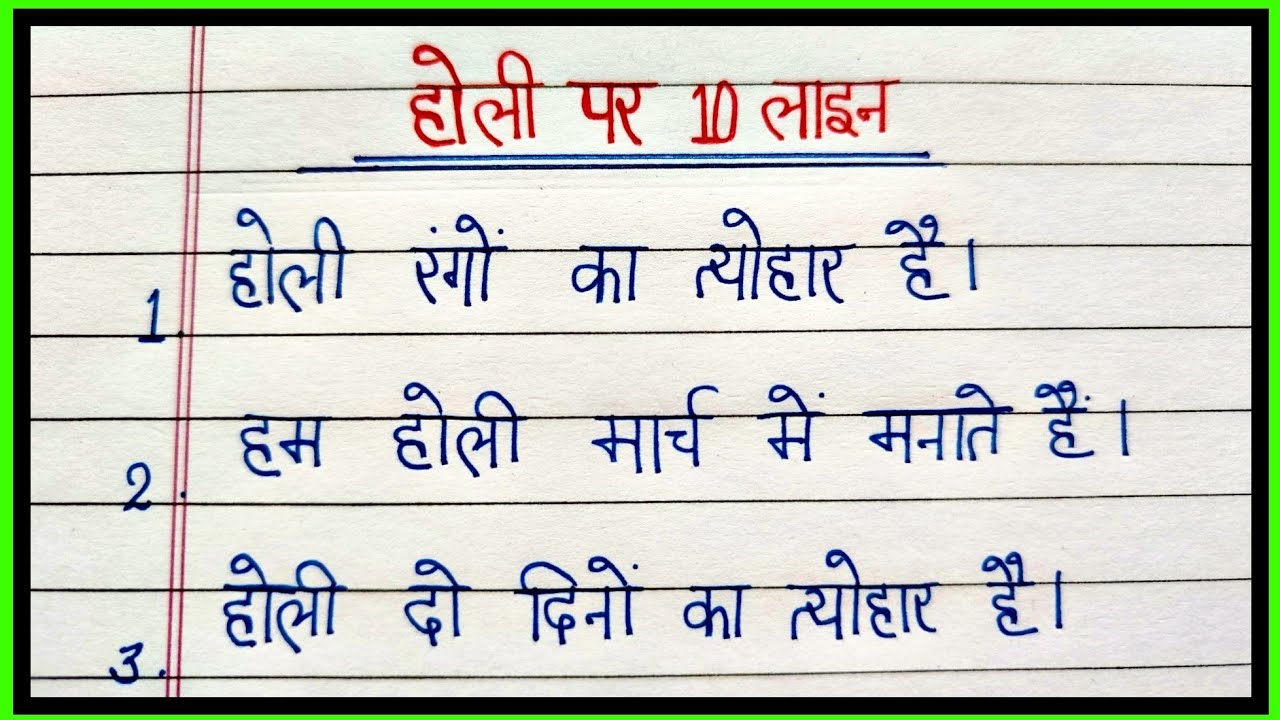 होली पर 10 लाइन
1. होली रंगों का त्योहार है।
2. हम होली मार्च में मनाते हैं।
3. होली दो दिनों का त्योहार है।